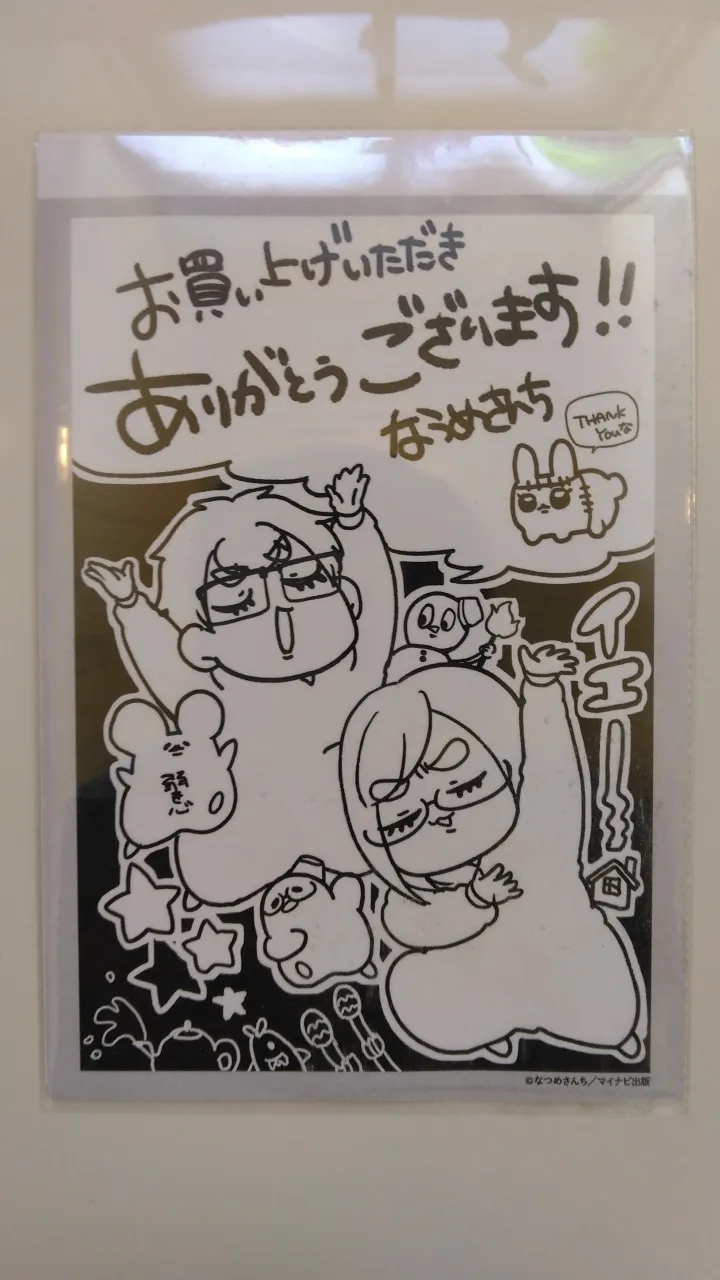 お買い上げいただき
ありがとうございます!!
なつめさんち
THANK
YOUな
イエーーー
弱き心
©なつめさんち／マイナビ出版